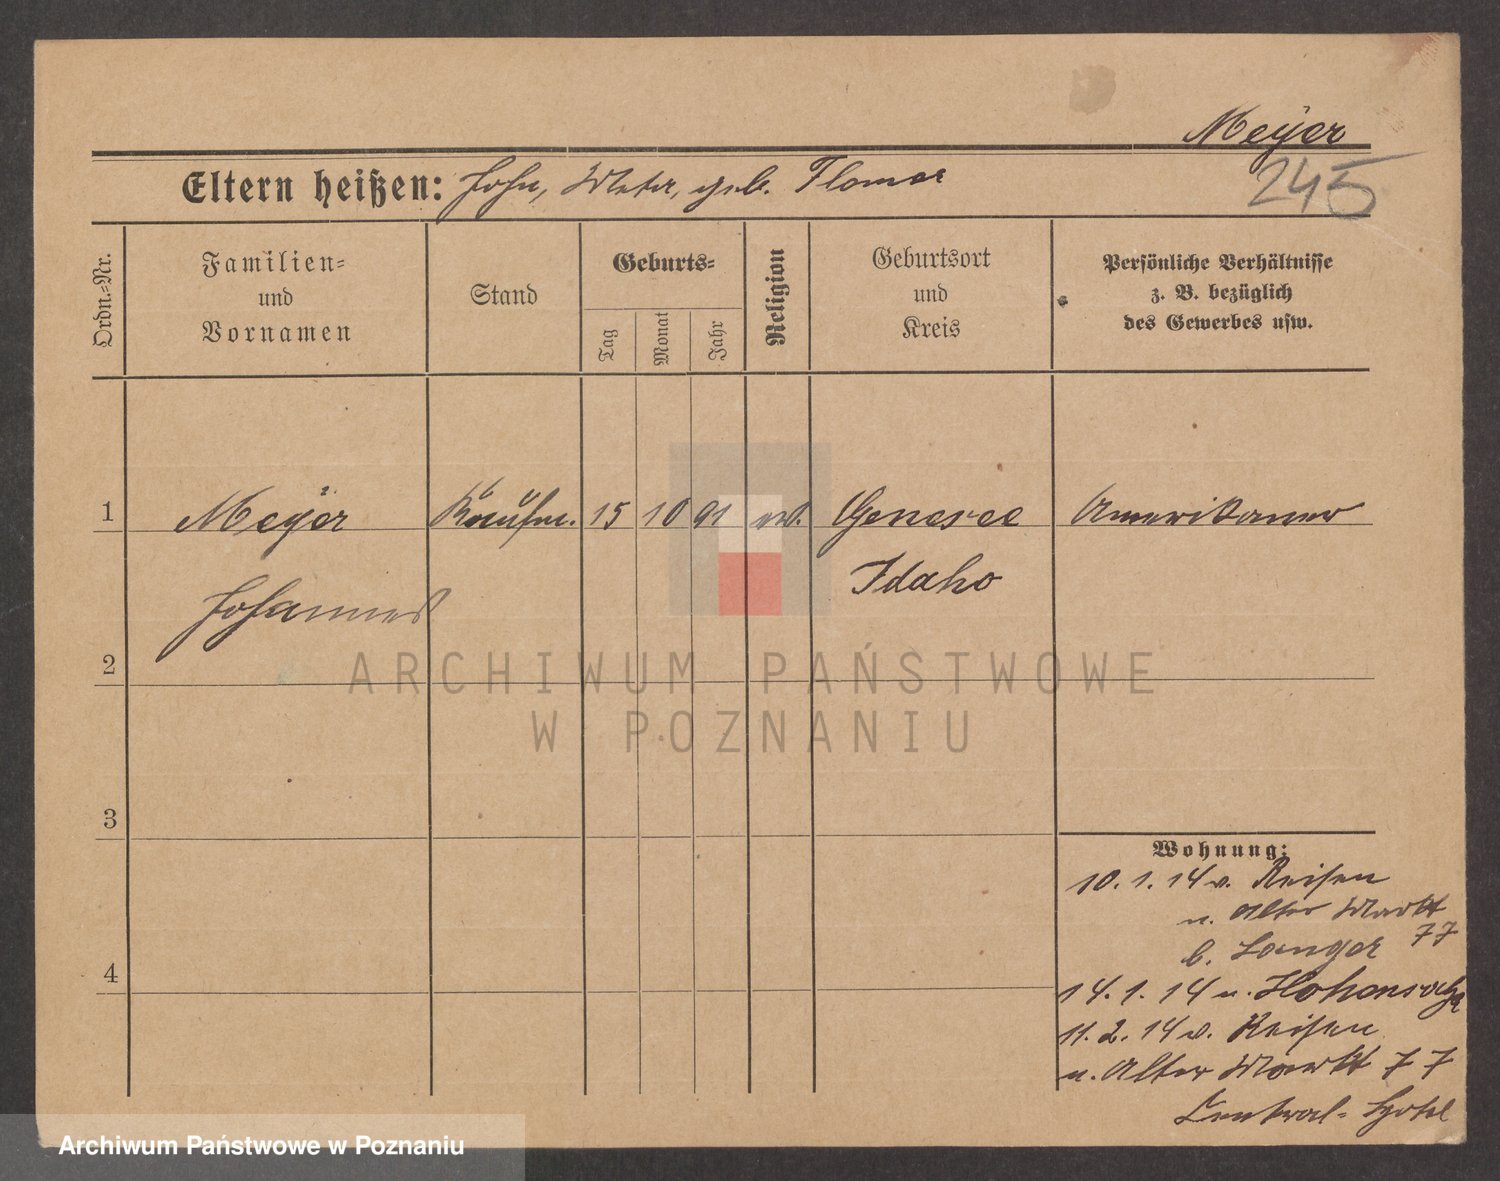 Meyer
245
Eltern heißen: John, Meta, geb. Flomer
Ordn.-Nr.
Familien-
und
Vornamen
Stand
Geburts-
Tag
Monat
Jahr
Religion
Geburtsort
und
Kreis
Persönliche Verhältnisse
z. B. bezüglich
des Gewerbes usw.
1
Meyer
Kaufm.
15
10
91
ev.
Genesee
Amerikaner
Johannes
Idaho
2
3
4
Wohnung:
10. 1. 14 v. Reisen
n. Alter Markt
77
b. Langer
14. 1. 14 n. Hohensalza
11. 2. 14 v. Reisen
n. Alter Markt 77
Central-Hotel
ARCHIWUM PAŃSTWOWE
W POZNANIU
Archiwum Państwowe w Poznaniu